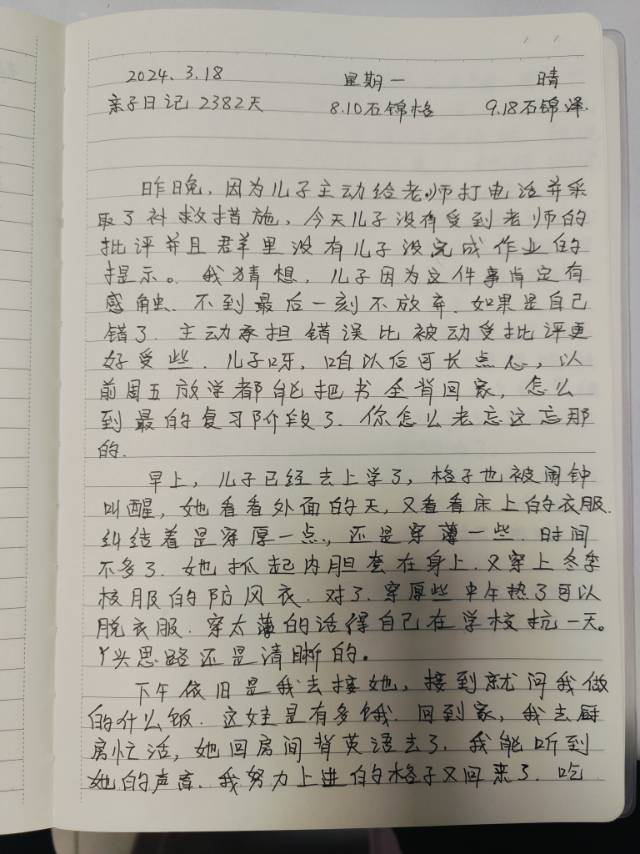 2024.3.18 星期一 晴
亲子日记 2382天 8.10石锦格 9.18石锦泽.
昨晚,因为儿子主动给老师打电话并采
取了补救措施,今天儿子没有受到老师的
批评并且群里没有儿子没完成作业的
提示。我猜想,儿子因为这件事肯定有
感触.不到最后一刻不放弃.如果是自己
错了.主动承担错误比被动受批评更
好受些.儿子呀,咱以后可长点心,以
前周五放学都能把书全背回家,怎么
到最的复习阶段了.你怎么老忘这忘那
的.
早上,儿子已经去上学了,格子也被闹钟
叫醒,她看看外面的天,又看看床上的衣服.
纠结着是穿厚一点,还是穿薄一些.时间
不多了.她抓起内胆套在身上.又穿上冬季
校服的防风衣.对了.穿厚些中午热了可以
脱衣服.穿太薄的话得自己在学校抗一天。
丫头思路还是清晰的。
下午依旧是我去接她,接到就问我做
的什么饭.这娃是有多饿.回到家,我去厨
房忙活,她回房间背英语去了.我能听到
她的声音.我努力上进的格子又回来了.吃